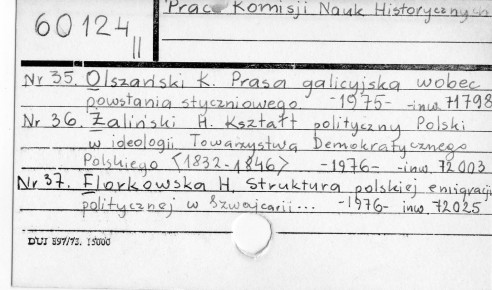 Prace Komisji Nauk Historycznych
60124
II
Nr 35. Olszański K. Prasa galicyjska wobec
powstania styczniowego -1975- -inw. 71798
Nr 36. Żaliński H. Kształt polityczny Polski
w ideologii Towarzystwa Demokratycznego
Polskiego <1832-1846> -1976- -inw. 72003
Nr 37. Florkowska H. Struktura polskiej emigracji
politycznej w Szwajcarii... -1976- inw. 72025
DUJ 897/73. 15000